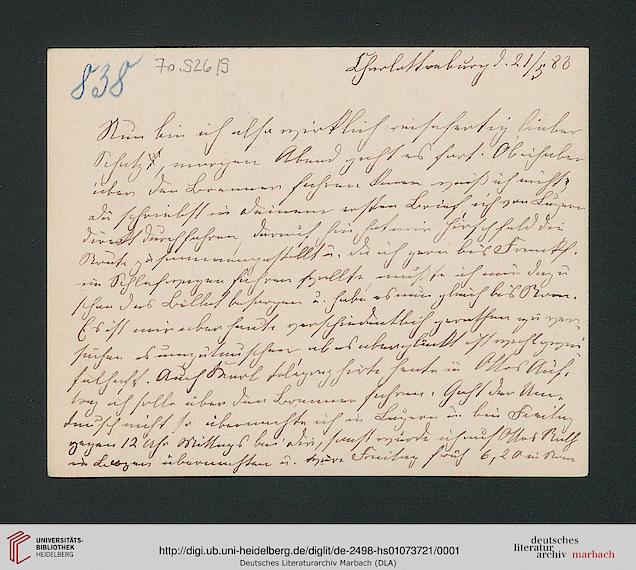 838
70.526/9
Charlottenburg d. 21/5 83
Nun bin ich also wirklich reisefertig lieber
Schatz, morgen Abend geht es fort. Ob ich aber
über den Brenner fahren kann weiß ich nicht,
du schriebst in deinem ersten Brief ich von Luzern
direkt durchfahren, darauf hin hat mir Hirschfeld die
Route zusammengestellt u. da ich gern bis Frankf.
im Schlafwagen fahren wollte, mußte ich mir dazu
schon das Billet besorgen u. habe es nun gleich bis Rom.
Es ist mir aber heute
suchen es umzutauschen ob es aber glückt ist mehr
Auch Karl telegraphirte heute in Ottos Auf-
trag ich solle über den Brenner fahren. Geht der Um-
tausch nicht so übernachte ich in Luzern u. bin Freitag
gegen 12 Uhr Mittags bei dir, sonst würde ich nach Ottos Rath
in Bozen übernachten u. wäre Freitag früh 6,20 in Rom
UNIVERSITÄTS-
BIBLIOTHEK
HEIDELBERG
http://digi.ub.uni-heidelberg.de/diglit/de-2498-hs01073721/0001
Deutsches Literaturarchiv Marbach (DLA)
deutsches
literatur
archiv marbach